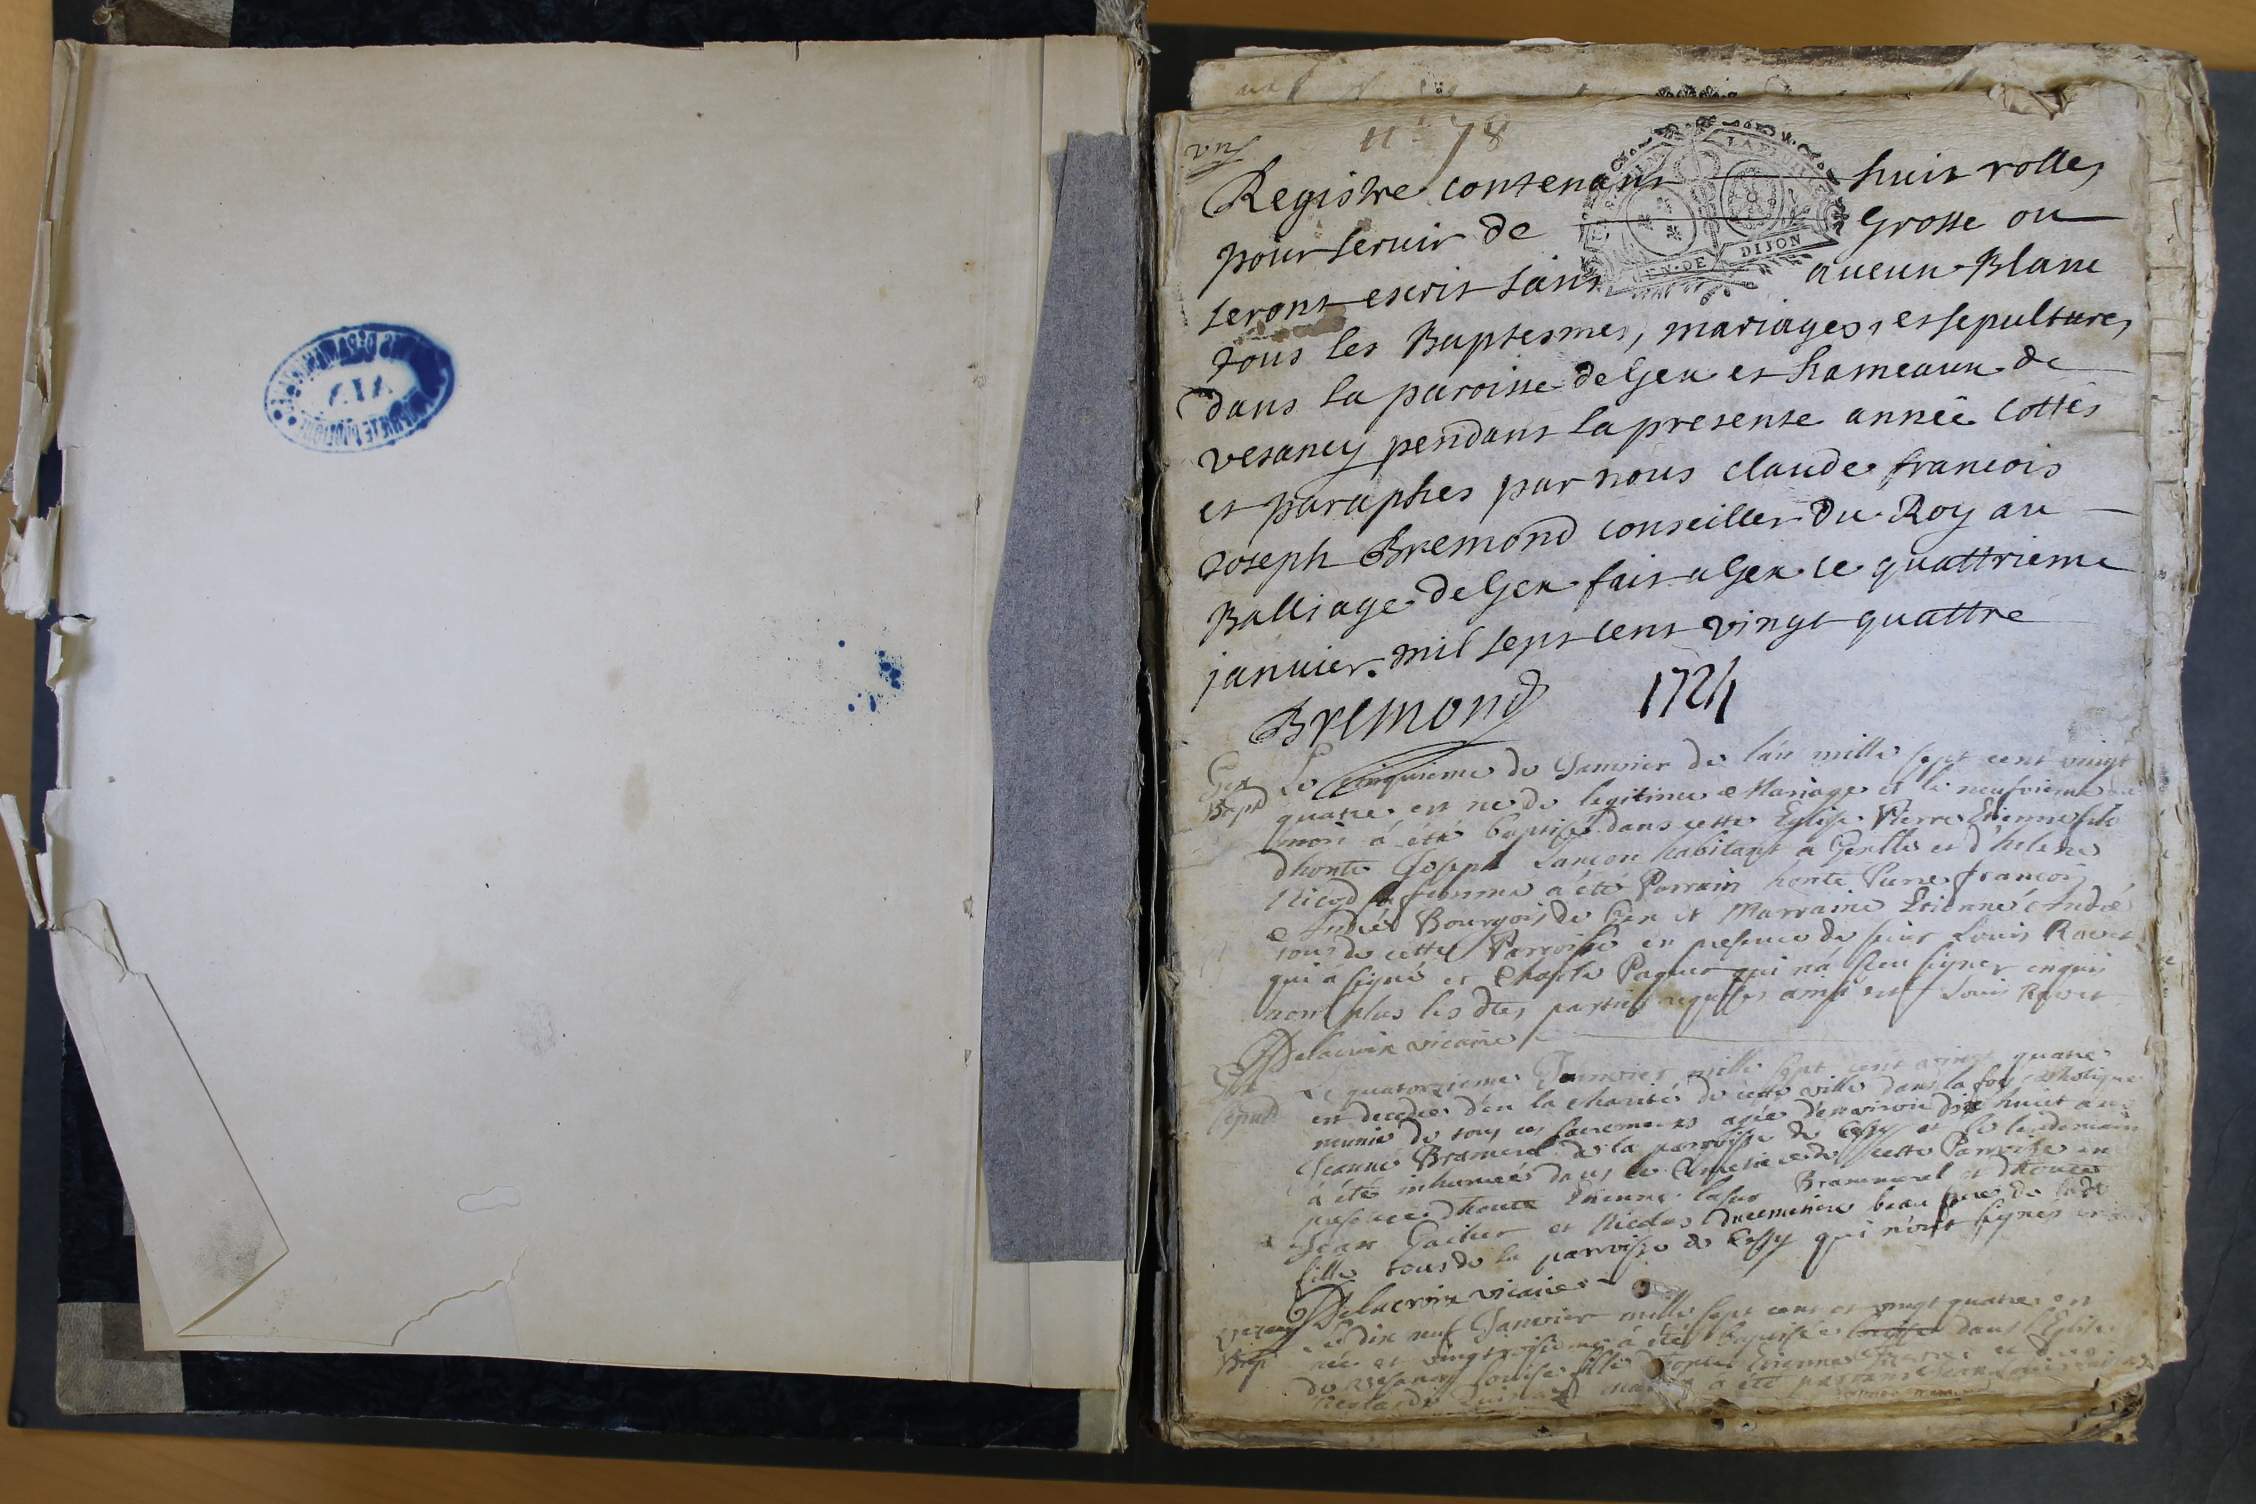 n.º 78
Registre contenant huit rolles
pour servir de Grosse ou
seront escrit sans aucun Blanc
tous les Baptesmes, mariages, et sepultures
dans la paroisse de Gex et hameaux de
vesancy pendant la presente année Cottés
et paraphes par nous claude francois
Joseph Bremond conseiller du Roy au
Balliage de Gex fait a Gex le quattrieme
janvier mil sept cent vingt quattre
Bremond 1724
DIJON
Gex
Bapt
Le cinquieme de Janvier de l'an mille sept cent vingt
quatre est né de legitime Mariage et le neufvieme
mois á été baptisé dans cette Eglise Pierre Etienne fils
d'honte Joseph Lançon habitant a et d'helene
Nicod sa femme a été Parrain honte Pierre françois
André Bourgois de Gex et Marraine Etienne André
tous de cette Parroisse en presence de Louis Ravet
qui a signé et Charle Paquet qui n'a sceu signer enquis
non plus les dtes parties requises ainsi est Louis Ravet
Delacroix vicaire
Gex
Sepult
Le quatorzieme Janvier mille sept cent vingt quatre
est decedée d'en la charité de cette ville dans la foy catholique
munie de tous ces sacremens agée d'environ dix huit ans
Jeanne Bramerel de la parroisse de Cessy et le lendemain
á été inhumée dans le Cimetiere de cette Parroisse en
presence d'honte Etienne Brammerel et d'honte
Jean et Nicolas beau frere de
fille tous de la parroisse de Cessy qui n'ont signés
Delacroix vicaire
Vezancy
Bapt
Le dix neuf Janvier mille sept cent et vingt quatre est
née et vingtroisieme á été baptisée dans l'Eglise
de Vesancy Louise fille d'honte Etienne
a été parrain Jean Louis